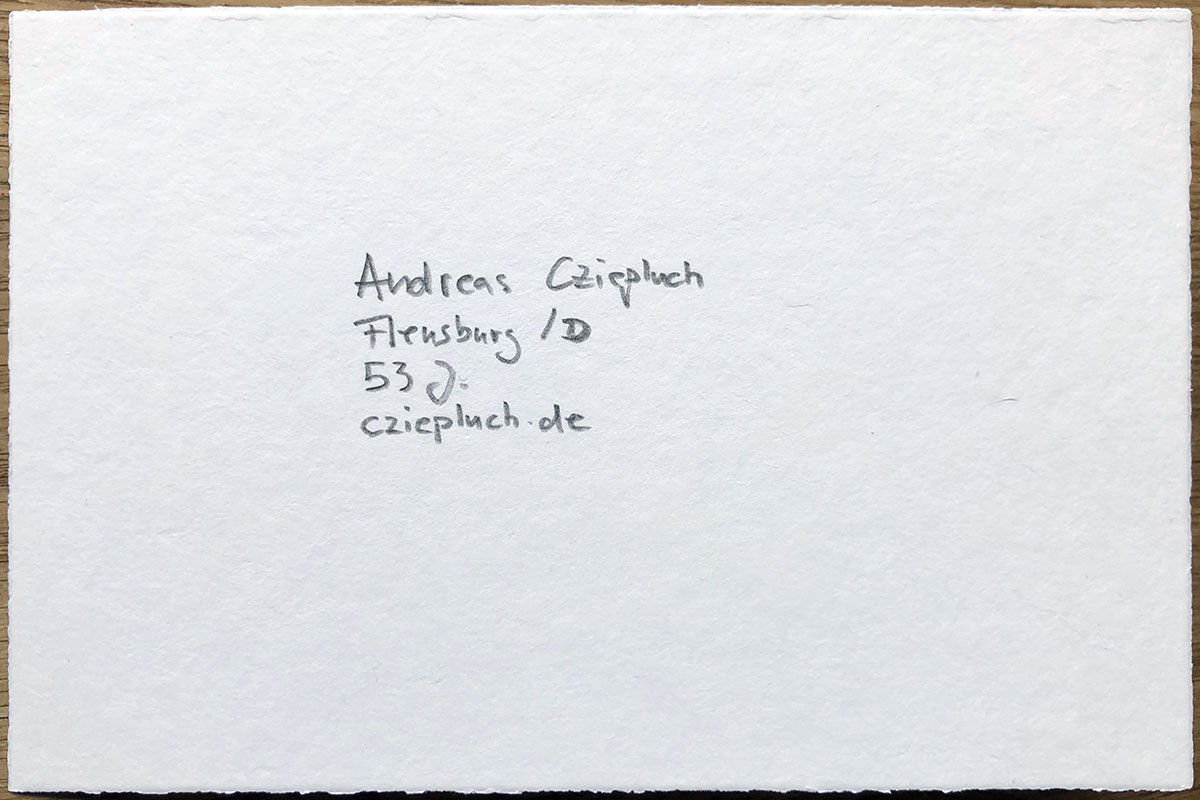 Andreas Cziepluch
Flensburg /D
53 J.
cziepluch.de